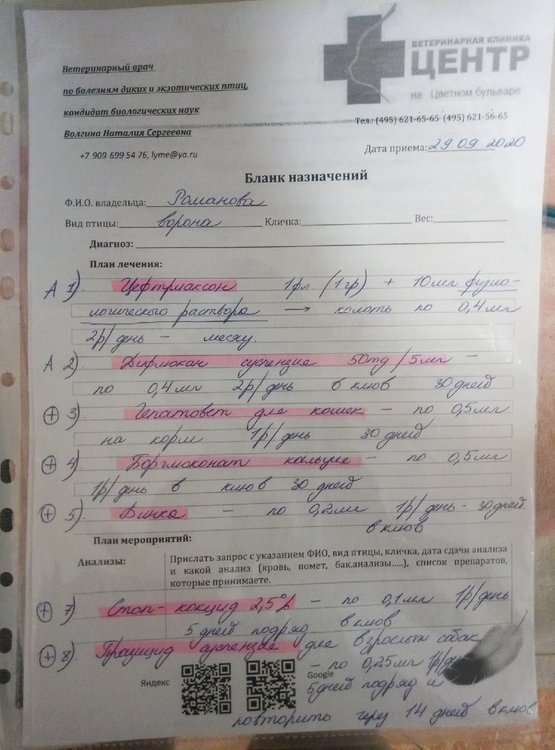 ВЕТЕРИНАРНАЯ КЛИНИКА
ЦЕНТР
на Цветном бульваре
Тел.: (495) 621-65-65 (495) 621-56-65
Ветеринарный врач
по болезням диких и экзотических птиц,
кандидат биологических наук
Волгина Наталия Сергеевна
+7 909 699 54 76, lyme@ya.ru
Дата приема: 29 09 2020
Бланк назначений
Ф.И.О. владельца: Романова
Вид птицы: ворона Кличка: Вес:
Диагноз:
План лечения:
А 1). Цефтриаксон 1фл (1гр) + 10мл физио-
логического раствора → колоть по 0,4мл
2р/день – месяц.
А 2). Дирмокан суспензие 50mg/5мл –
по 0,4мл 2р/день в клюв 30дней
+ 3). Гепатовет для кошек – по 0,5мл
на корм 1р/день 30 дней
+ 4). Борглюконат кальция – по 0,5мл
1р/день в клюв 30 дней
+ 5). – по 0,2мл 1р/день - 30дней
в клюв
План мероприятий:
Анализы: Прислать запрос с указанием ФИО, вид птицы, кличка, дата сдачи анализа
и какой анализ (кровь, помет, баканализы.....), список препаратов,
которые принимаете.
+ 7) Стоп-кокцид 2,5% – по 0,1мл 1р/день
5 дней подряд в клюв
+ 8). Празицид суспензие для взрослых собак
– по 0,25мл 1р/
Яндекс Google
5дней подряд и
повторить через 14 дней в клюв